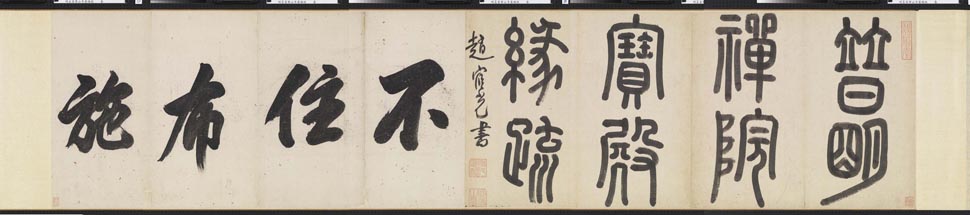 普明
禪院
寶殿
緣疏
趙宧光書
不住布施